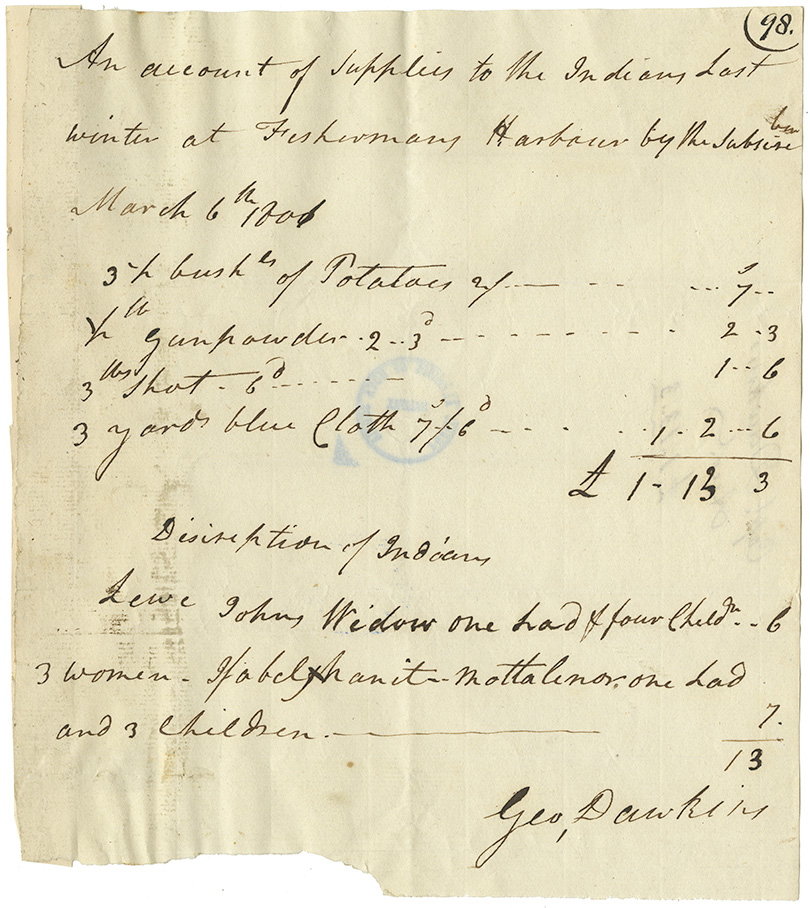 98.
An account of Supplies to the Indians Last
winter at Fishermans Harbour by the Subscriber
March 6th 1801
3½ bushls of Potatoes 2/ — - - - - - - 7s - -
½ lb gunpowder - 2 - 3d - - - - - - 2 - 3
3 lbs Shot - 6d - - - - - - 1 - - 6
3 yards blue Cloth 7s/6d - - - - - - 1 - 2 - - 6
£ 1 - 13 3
Discreption of Indians
Lewe Johns Widow one Lad & four Childn - - 6
3 women - Isabel, hanit - mottalenor. one Lad
and 3 Children. — 7.
13
Geo, Dawkins